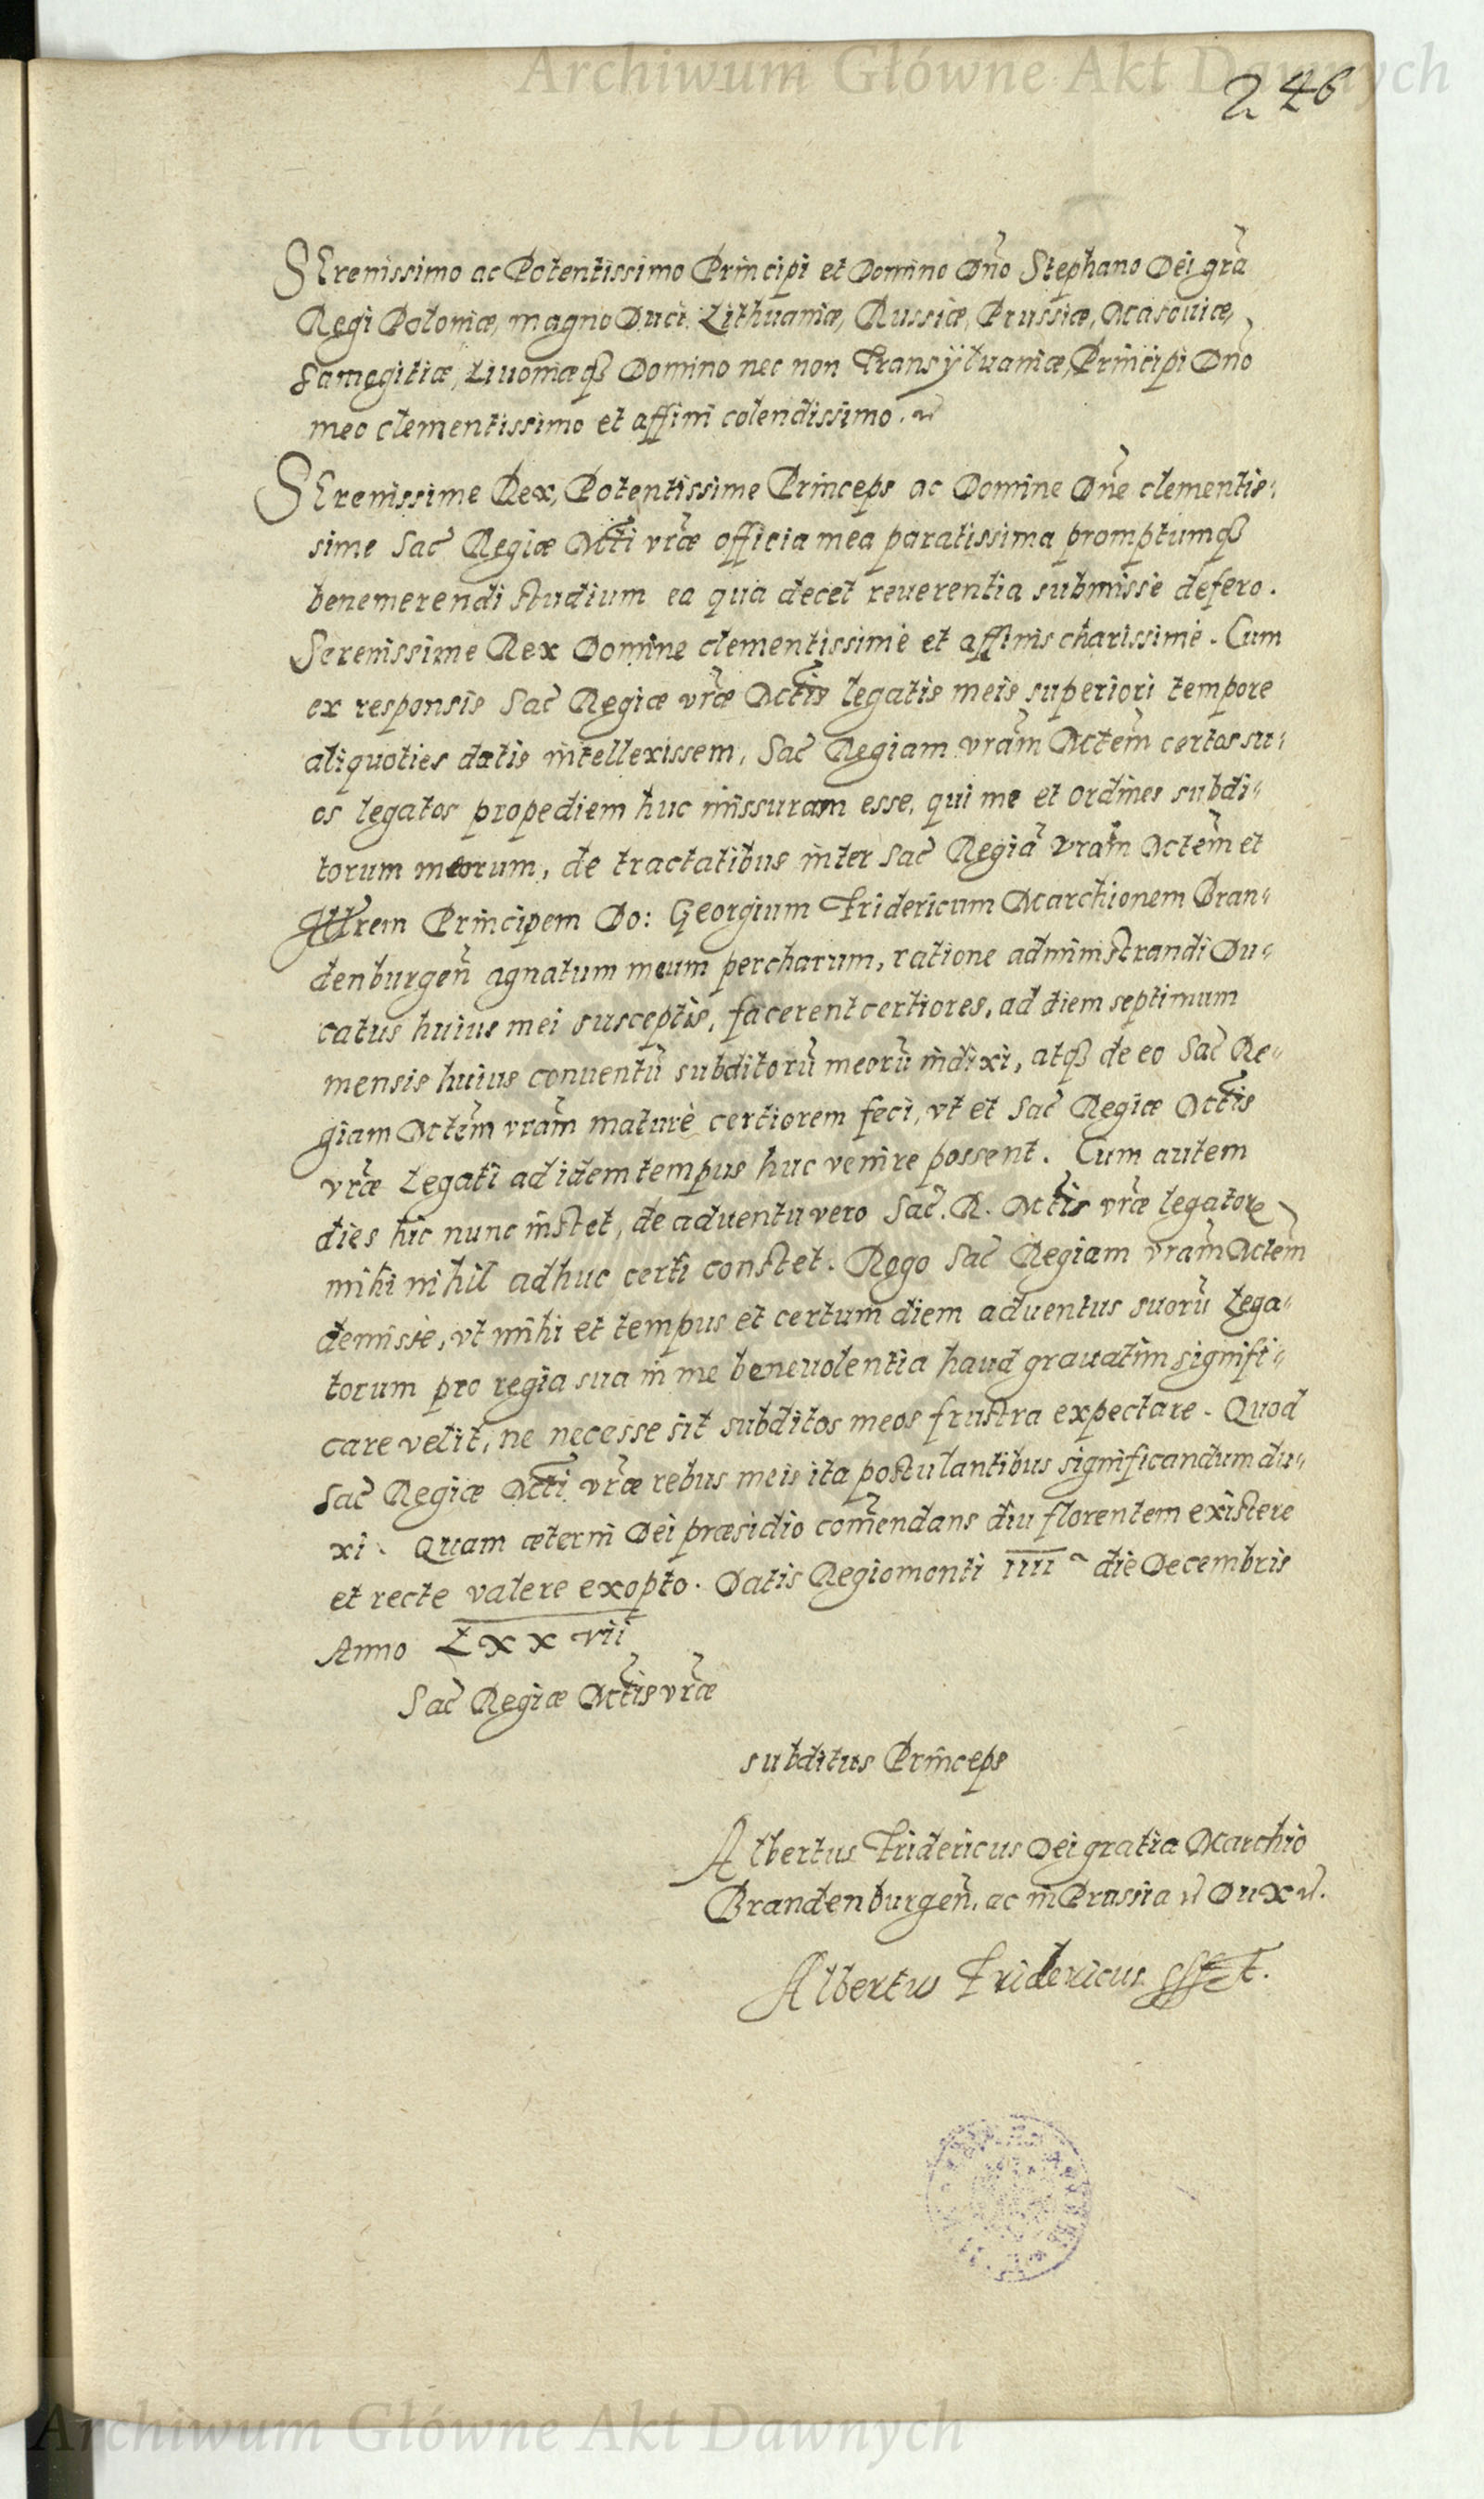 Archiwum Główne Akt Dawnych
246
SErenissimo ac Potentissimo Principi et Domino Dño Stephano Dei grã
Regi Poloniæ, magno Duci Lithuaniæ, Russiæ, Prussiæ, Masouiæ,
Samogitiæ, Liuoniæq́ꝫ Domino nec non Transÿluaniæ, Principi Dño
meo clementissimo et affini colendissimo.
SErenissime Rex, Potentissime Princeps ac Domine Dñe clementis:
sime Sac̃ Regiæ Mt̃i vr̃æ officia mea paratissima promptumqꝫ
benemerendi studium ea qua decet reuerentia submisse defero.
Serenissime Rex Domine clementissime et affinis charissime. Cum
ex responsis Sac̃ Regiæ vr̃æ Mt̃is legatis meis superiori tempore
aliquoties datis intellexissem, Sac̃ Regiam vrãm Mtẽm certos su:
os legatos propediem huc missuram esse, qui me et ordines subdi:
torum meorum, de tractatibus inter Sac̃ Regiã vrãm Mtẽm et
Illr̃em Principem Do: Georgium Fridericum Marchionem Bran:
denburgeñ agnatum meum percharum, ratione administrandi Du:
catus huius mei susceptis, facerent certiores, ad diem septimum
mensis huius conuentũ subditorũ meorũ indixi, atqꝫ de eo Sac̃ Re:
giam Mtẽm vrãm maturè certiorem feci, vt et Sac̃ Regiæ Mt̃is
vr̃æ Legati ad idem tempus huc venire possent. Cum autem
dies hic nunc instet, de aduentu vero Sac̃. R. Mt̃is vr̃æ legatorꝫ
mihi nihil adhuc certi constet. Rogo Sac̃ Regiam vrãm Mtẽm
demisse, vt mihi et tempus et certum diem aduentus suorũ Lega:
torum pro regia sua in me beneuolentia haud grauatim signifi:
care velit, ne necesse sit subditos meos frustra expectare. Quod
Sac̃ Regiæ Mt̃i vr̃æ rebus meis ita postulantibus significandum du:
xi. Quam æterni Dei præsidio com̃endans diu florentem existere
et recte valere exopto. Datis Regiomonti IIII ᵃ die Decembris
Anno Lxxvii
Sac̃ Regiæ Mt̃is vr̃æ
subditus Princeps
Albertus Fridericus Dei gratia Marchio
Brandenburgeñ. ac in Prussia Dux
Albertus Fridericus
Archiwum Główne Akt Dawnych